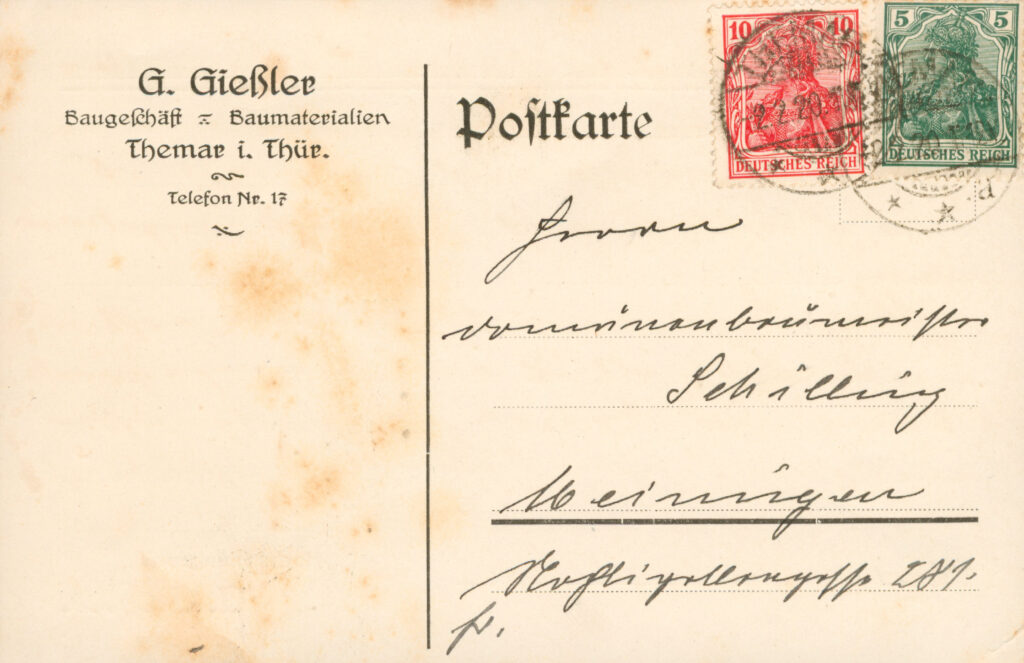 G. Gießler
Baugeschäft = Baumaterialien
Themar i. Thür.
Telefon Nr. 17
Postkarte
10 10
DEUTSCHES REICH
5 5
DEUTSCHES REICH
2.2.20.
Herrn
Domänenbaumeister
Schilling
Meiningen